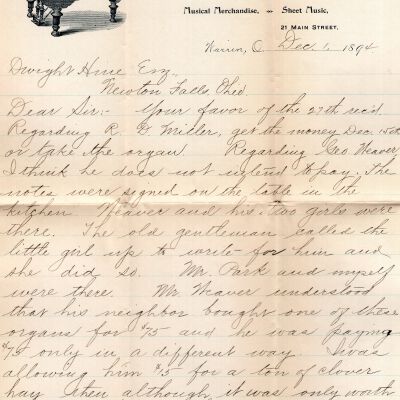 Musical Merchandise, Sheet Music,
21 Main Street,
Warren, O. Dec. 1, 1894
Dwight Hine Esq.,
Newton Falls Ohio
Dear Sir:- Your favor of the 27th rec'd.
Regarding R. D. Miller, get the money Dec. 15th
or take the organ. Regarding Geo Weaver
I think he does not intend to pay. The
notes were signed on the table in the
kitchen. Weaver and his two girls were
there. The old gentleman called the
little girl up to write for him and
she did so. Mr. Park and myself
were there. Mr. Weaver understood
that his neighbor bought one of these
organs for $75 and he was paying
$75 only in a different way. I was
allowing him $15 for a ton of clover
hay then although it was only worth